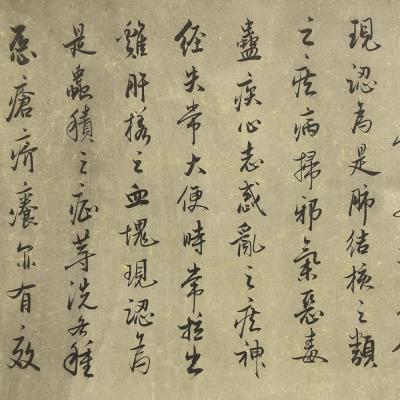 現認為是肺結核之類
之疾病掃邪氣惡毒
蠱疾心志惑亂之疾神
經失常大便時常拉出
雞肝樣之血塊現認為
是蟲積之症等洗各種
惡瘡疥癢亦有效